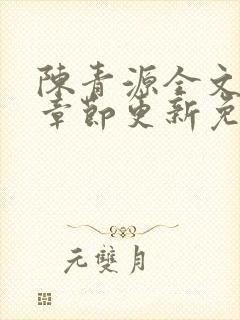 陳青源全文
章節更新免
元雙月